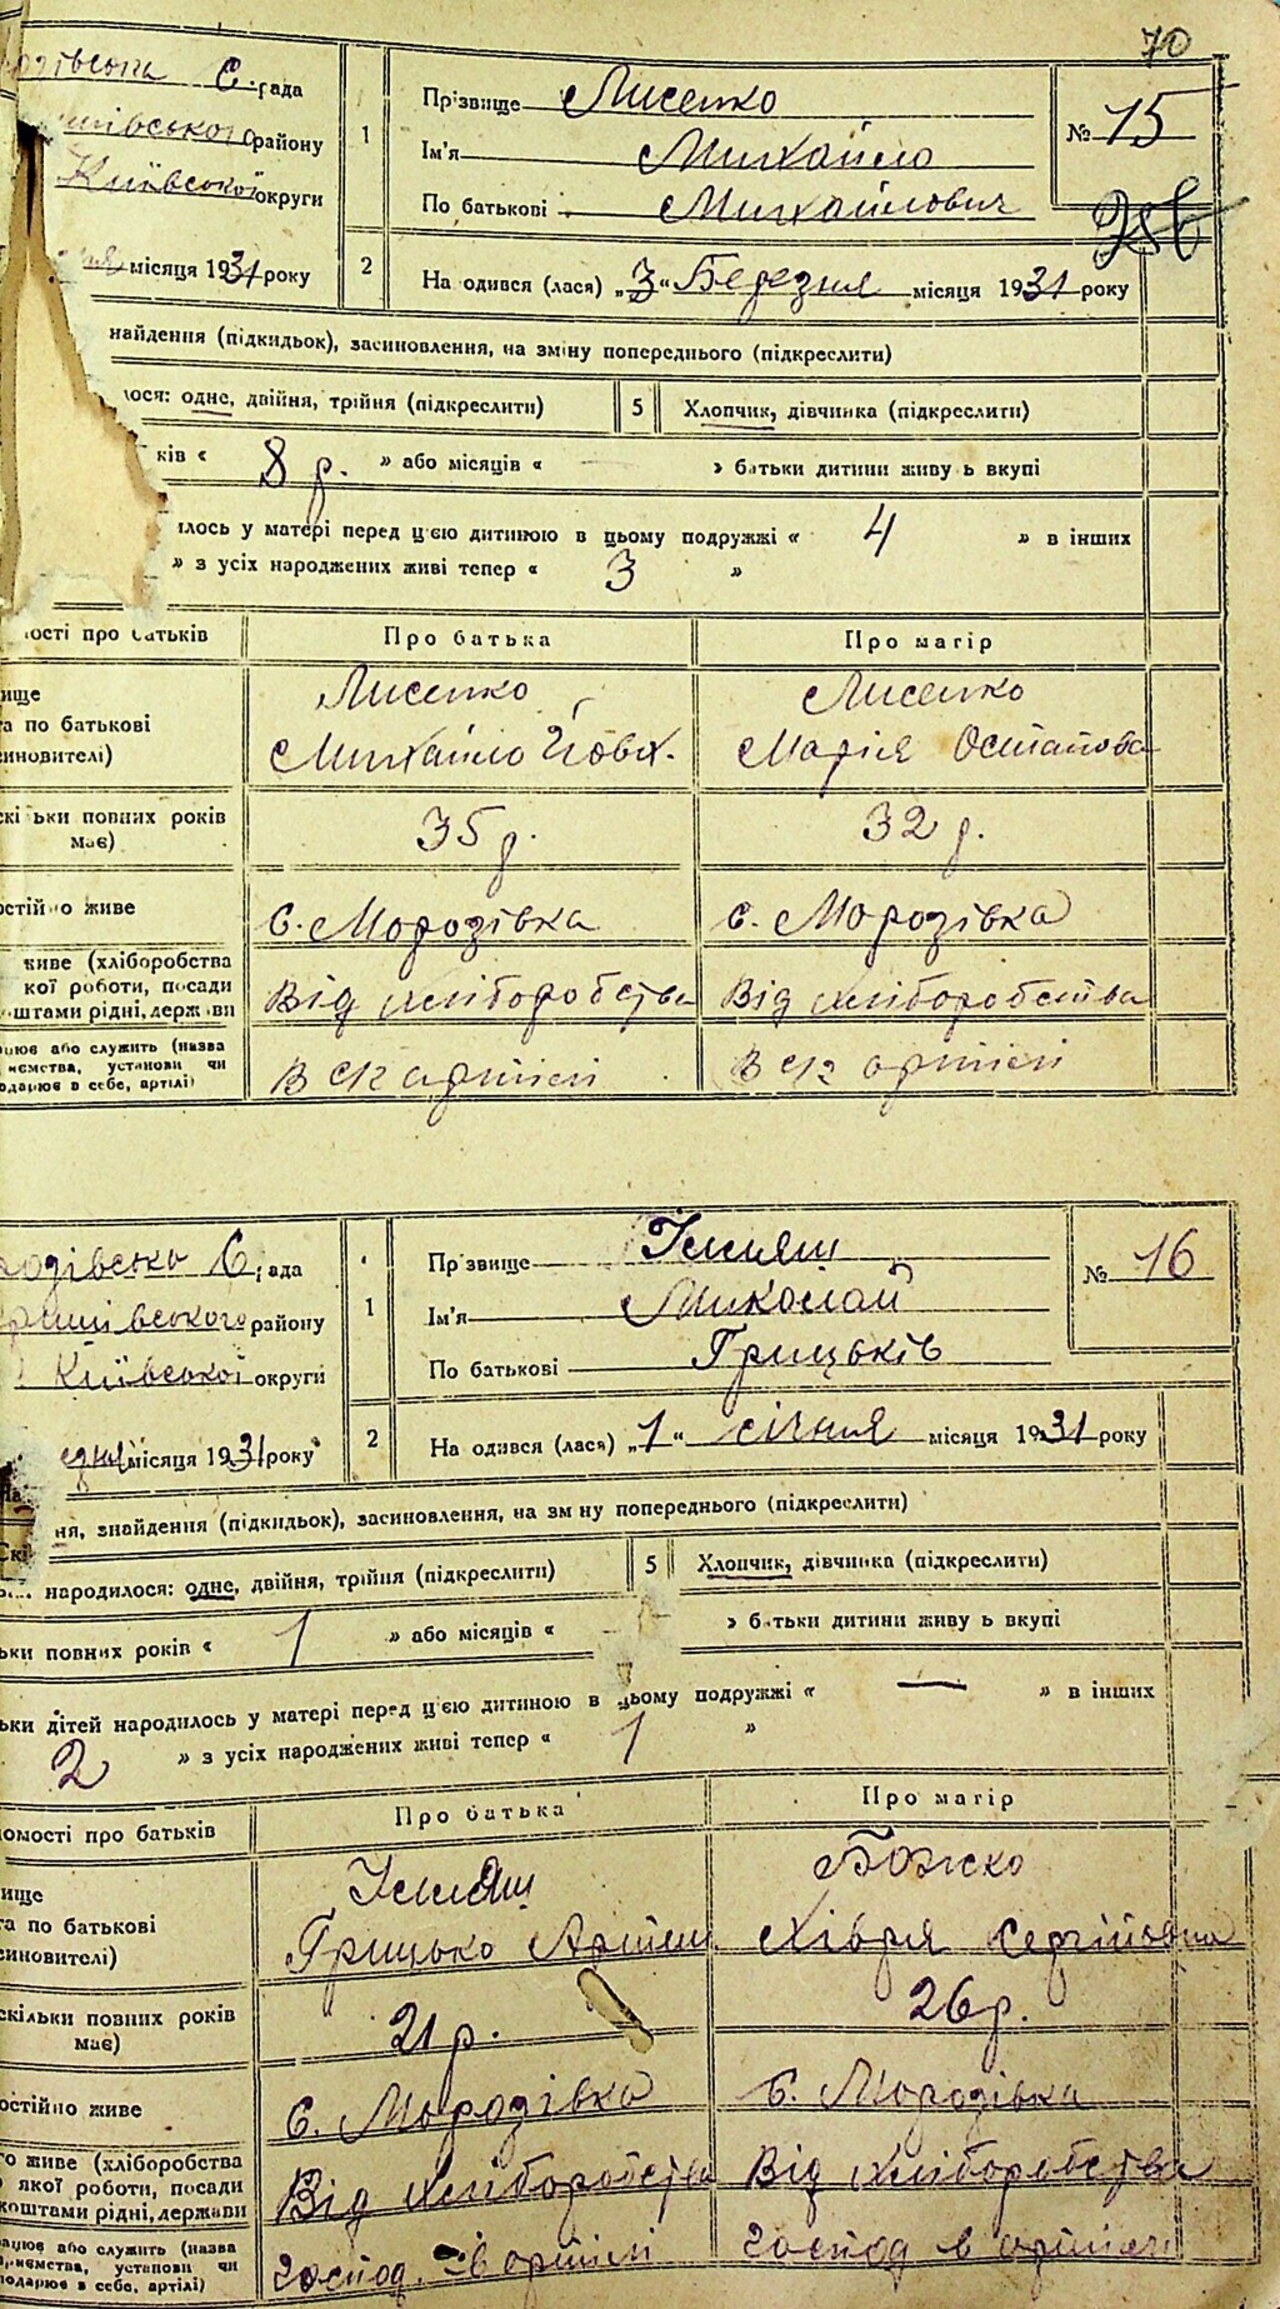 70
одівська С. рада
Прізвище Лисенко
№ 15
шівського району
1
Ім'я Михайло
Київської округи
По батькові Михайлович
місяця 1931 року
2
На одився (лася) „3“ Березня місяця 1931 року
найдення (підкидьок), засиновлення, на зміну попереднього (підкреслити)
лося: одне, двійня, трійня (підкреслити)
5
Хлопчик, дівчинка (підкреслити)
ків « 8 р. » або місяців « » батьки дитини живу ь вкупі
лось у матері перед цією дитиною в цьому подружжі « 4 » в інших
» з усіх народжених живі тепер « 3 »
ості про батьків
Про батька
Про матір
ище
та по батькові
синовителі)
Лисенко
Михайло
Лисенко
Марія Остапова
скі ьки повних років
має)
35 р.
32 р.
остійно живе
с. Морозівка
с. Морозівка
живе (хліборобства
кої роботи, посади
штами рідні, держ ви
Від хліборобства
Від хліборобства
ацює або служить (назва
иємства, установи чи
одарює в себе, артілі)
в с/г артілі
в с/г артілі
одівська С. рада
Прізвище
№ 16
івського району
1
Ім'я Миколай
Київської округи
По батькові Грицьків
місяця 1931 року
2
На одився (лася) „1“ січня місяця 1931 року
ня, знайдення (підкидьок), засиновлення, на зм ну попереднього (підкреслити)
народилося: одне, двійня, трійня (підкреслити)
5
Хлопчик, дівчинка (підкреслити)
ьки повних років « 1 » або місяців « » батьки дитини живу ь вкупі
ьки дітей народилось у матері перед цією дитиною в цьому подружжі « — » в інших
2 » з усіх народжених живі тепер « 1 »
омості про батьків
Про батька
Про матір
ище
та по батькові
синовителі)
Грицько Артем
Божко
Хівря Сергійовна
скільки повних років
має)
21 р.
26 р.
остійно живе
с. Морозівка
с. Морозівка
го живе (хліборобства
якої роботи, посади
коштами рідні, держави
Від хліборобства
Від хліборобства
ацює або служить (назва
приємства, установи чи
подарює в себе, артілі)
господ. в артілі
господ в артілі